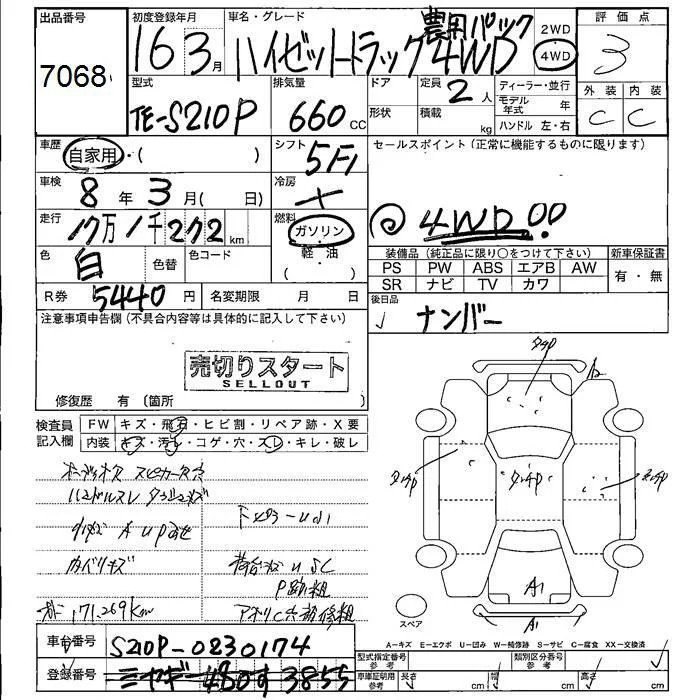 出品番号 7068
初度登録年月 16 3月
車名・グレード ハイゼットトラック 農用パック 4WD
2WD
4WD
評価点 3
外装 内装
C C
型式 TE-S210P
排気量 660 CC
ドア
形状
定員 2人
積載 kg
ディーラー・並行
モデル年式 年
ハンドル 左・右
車歴 自家用・( )
シフト 5F
セールスポイント (正常に機能するものに限ります)
車検 8年3月( 日)
冷房
4WD!!
走行 17万1千272km
燃料 ガソリン
軽・油
( )
色 白 色替
色コード
装備品 (純正品に限り○をつけて下さい) 新車保証書
PS PW ABS エアB AW
SR ナビ TV カワ
有・無
R券 5440円 名変期限 月 日
後日品
ナンバー
注意事項申告欄 (不具合内容等は具体的に記入して下さい)
売切りスタート
SELLOUT
修復歴 有 (箇所
検査員記入欄
FW キズ・飛石・ヒビ割・リペア跡・X要
内装 キズ・汚レ・コゲ・穴・スレ・キレ・破レ
A
A1
A1
171,269km
スペア
A-キズ E-エクボ U-凹み W-補修跡 S-サビ C-腐食 XX-交換済
車台番号 S210P-0230174
登録番号 ミヤギ 480す3855
型式指定番号 参考
類別区分番号 参考
車庫証明用 参考 長さ cm 幅 cm 高さ cm